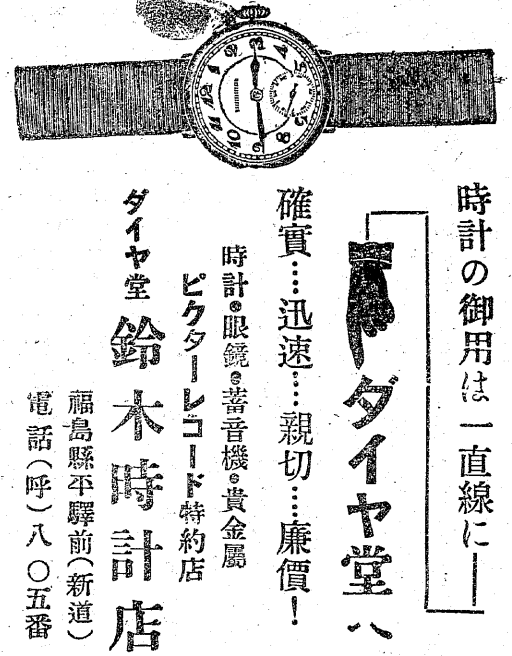 時計の御用は一直線に━━
ダイヤ堂へ
確實……迅速……親切……廉價！
時計・眼鏡・蓄音機・貴金屬
ビクターレコード特約店
ダイヤ堂 鈴木時計店
福島縣平驛前（新道）
電話（呼）八〇五番